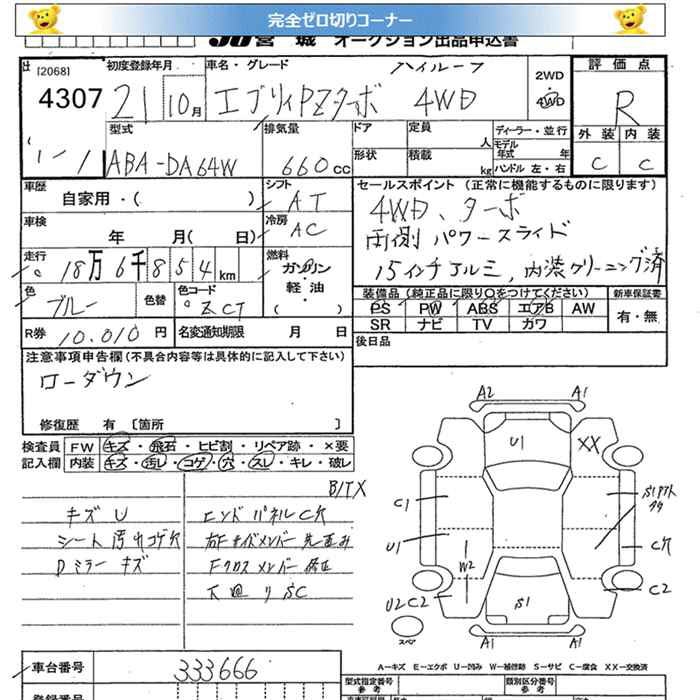 完全ゼロ切りコーナー
JU宮城 オークション出品申込書
[2068]
4307
1-1
初度登録年月
21 10月
車名・グレード
ハイルーフ
エブリィPZターボ 4WD
2WD
4WD
評価点
R
外装 内装
C C
型式
ABA-DA64W
排気量
660cc
ドア
形状
定員
人
積載
kg
ディーラー・並行
モデル年式 年
ハンドル 左・右
車歴
自家用・( )
シフト
AT
車検
年 月( 日)
冷房
AC
走行
18万6千854km
燃料
ガソリン・
軽油・
( )
色
ブルー
色替
色コード
ZCT
R券 10,010円
名変通知期限 月 日
セールスポイント (正常に機能するものに限ります)
4WD、ターボ
両側パワースライド
15インチアルミ, 内装クリーニング済
装備品(純正品に限り○をつけてください)
PS PW ABS エアB AW
SR ナビ TV カワ
新車保証書
有・無
後日品
注意事項申告欄(不具合内容等は具体的に記入して下さい)
ローダウン
修復歴 有 [箇所 ]
検査員
記入欄
FW キズ・飛石・ヒビ割・リペア跡・×要
内装 キズ・汚レ・コゲ・穴・スレ・キレ・破レ
B/TX
キズU
シート汚れコゲ穴
Dミラーキズ
エンドパネルC穴
右Fサイドメンバー先歪み
Fクロスメンバー修正
下廻りSC
A2 A1
U1 XX
C1
U1
W2
U2 C2
S1
C穴
C2
A1 A1
スペア
A-キズ E-エクボ U-凹み W-補修跡 S-サビ C-腐食 XX-交換済
車台番号 333666
登録番号
型式指定番号
参考
類別区分番号
参考